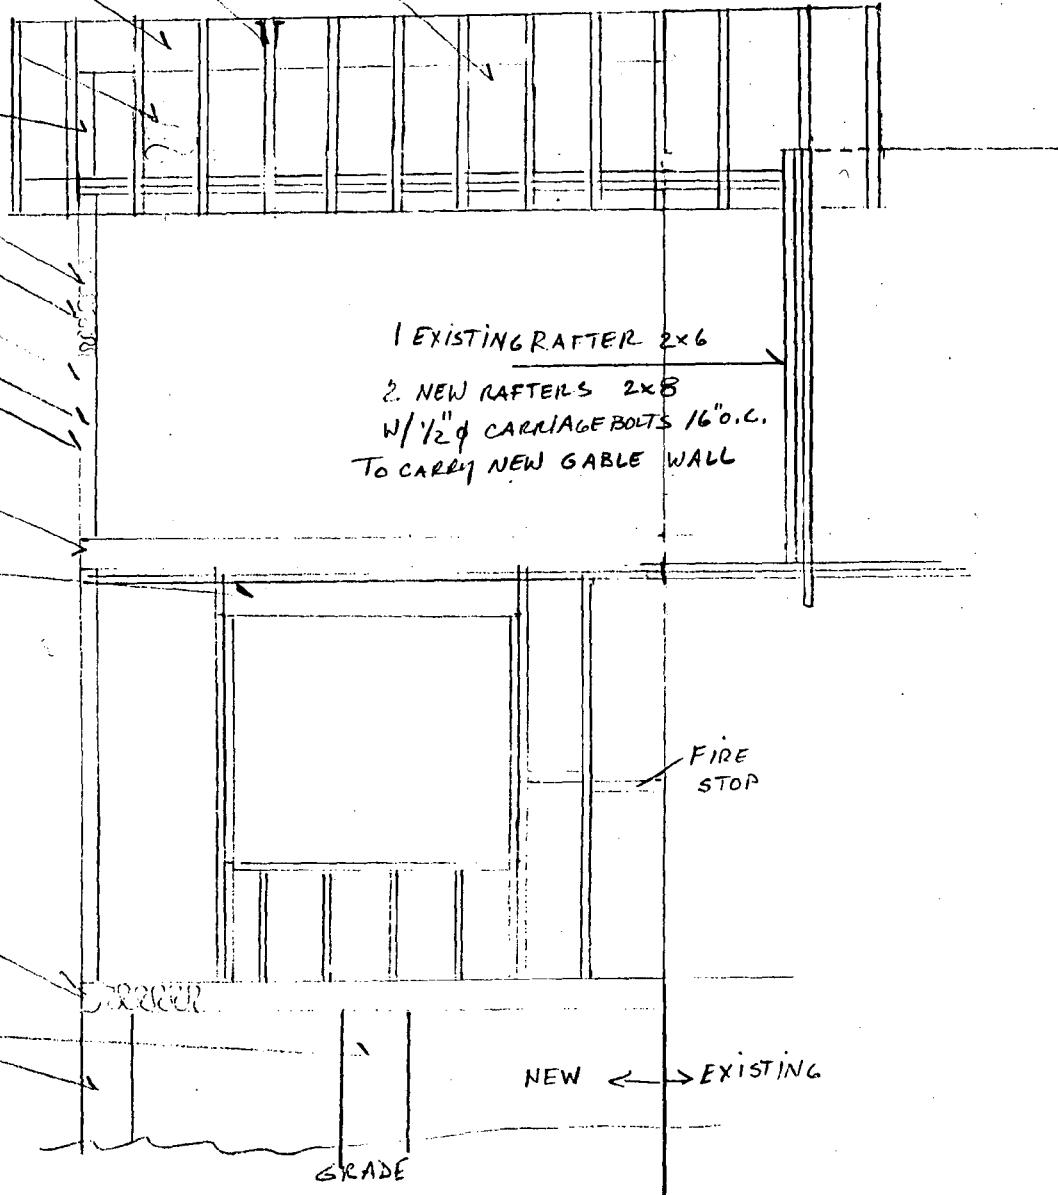 1 EXISTING RAFTER 2x6
2 NEW RAFTERS 2x8
W/ 1/2" ϕ CARRIAGE BOLTS 16" O.C.
TO CARRY NEW GABLE WALL
FIRE
STOP
NEW ↔ EXISTING
GRADE